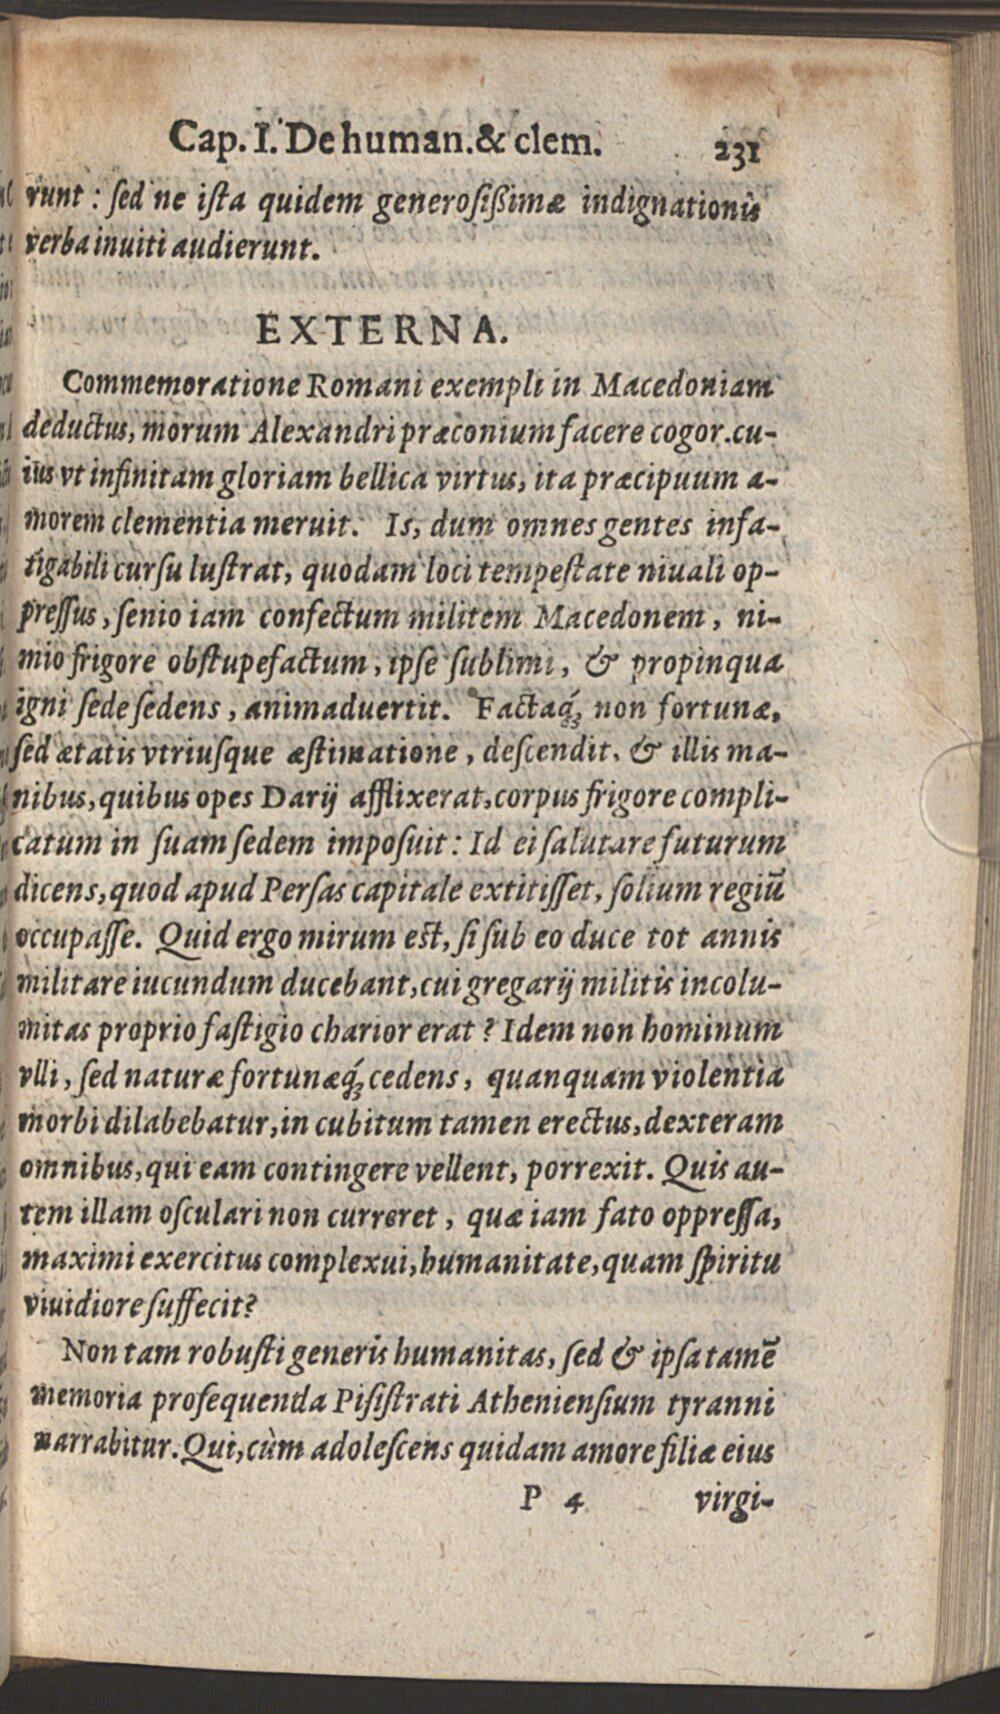 Cap. I. De human. & clem. 231
runt : ſed ne iſta quidem generoſißimæ indignationis
verba inuiti audierunt.
EXTERNA.
Commemoratione Romani exempli in Macedoniam
deductus, morum Alexandri præconium facere cogor. cu-
ius vt infinitam gloriam bellica virtus, ita præcipuum a-
morem clementia meruit. Is, dum omnes gentes infa-
tigabili curſu luſtrat, quodam loci tempeſtate niuali op-
preſſus, ſenio iam confectum militem Macedonem, ni-
mio frigore obſtupefactum, ipſe ſublimi, & propinqua
igni ſede ſedens, animaduertit. Factaq́; non fortunæ,
ſed ætatis vtriuſque æſtimatione, deſcendit, & illis ma-
nibus, quibus opes Darij afflixerat, corpus frigore compli-
catum in ſuam ſedem impoſuit : Id ei ſalutare futurum
dicens, quod apud Perſas capitale extitiſſet, ſolium regiū
occupaſſe. Quid ergo mirum eſt, ſi ſub eo duce tot annis
militare iucundum ducebant, cui gregarij militis incolu-
mitas proprio faſtigio charior erat ? Idem non hominum
vlli, ſed naturæ fortunæq́; cedens, quanquam violentia
morbi dilabebatur, in cubitum tamen erectus, dexteram
omnibus, qui eam contingere vellent, porrexit. Quis au-
tem illam oſculari non curreret, quæ iam fato oppreſſa,
maximi exercitus complexui, humanitate, quam ſpiritu
viuidiore ſuffecit?
Non tam robuſti generis humanitas, ſed & ipſa tamē
memoria proſequenda Piſiſtrati Athenienſium tyranni
narrabitur. Qui, cùm adoleſcens quidam amore filiæ eius
P 4 virgi-